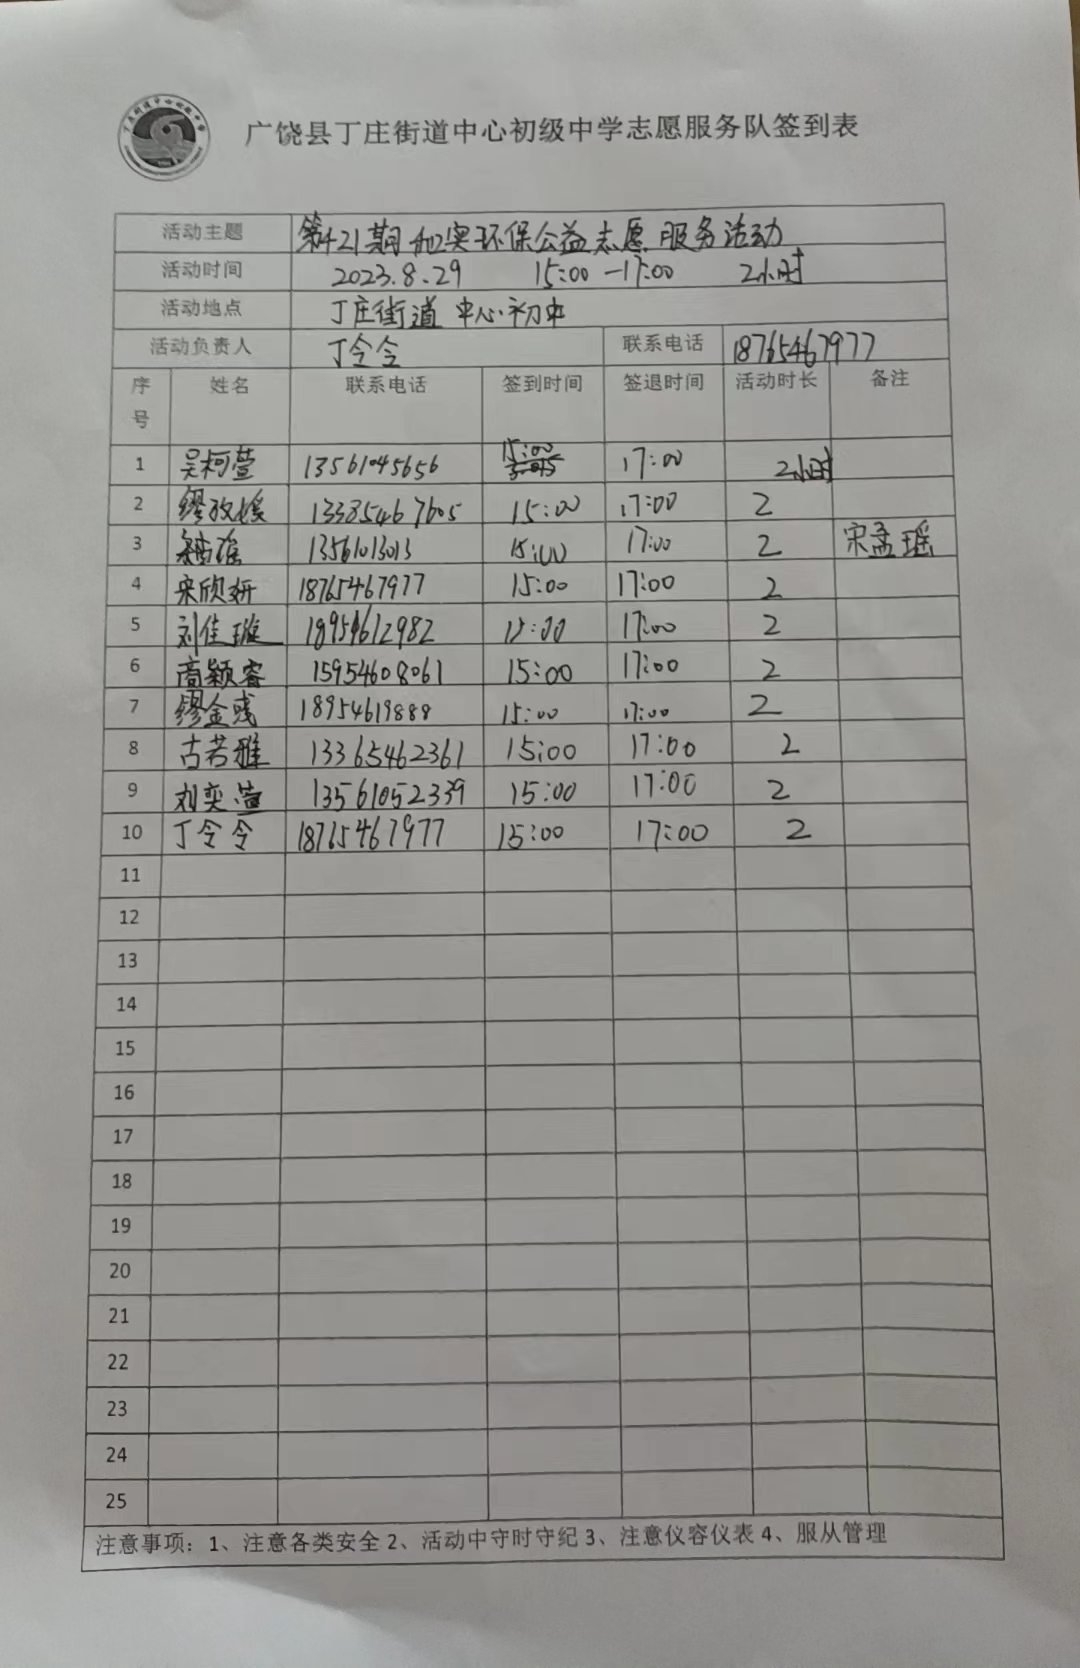 广饶县丁庄街道中心初级中学志愿服务队签到表
活动主题 第421期 和奥环保公益志愿服务活动
活动时间 2023.8.29 15:00—17:00 2小时
活动地点 丁庄街道中心初中
活动负责人 丁令令 联系电话 18765467977
序号 姓名 联系电话 签到时间 签退时间 活动时长 备注
1 吴柯萱 13561045656 15:00 17:00 2小时
2 缪孜媛 13385467605 15:00 17:00 2
3 13561013013 15:00 17:00 2 宋孟瑶
4 宋欣妍 18765467977 15:00 17:00 2
5 刘佳璇 18954612982 15:00 17:00 2
6 高颖睿 15954608061 15:00 17:00 2
7 缪金彧 18954619888 15:00 17:00 2
8 古若雅 13365462361 15:00 17:00 2
9 刘奕萱 13561052339 15:00 17:00 2
10 丁令令 18765467977 15:00 17:00 2
11
12
13
14
15
16
17
18
19
20
21
22
23
24
25
注意事项：1、注意各类安全 2、活动中守时守纪 3、注意仪容仪表 4、服从管理